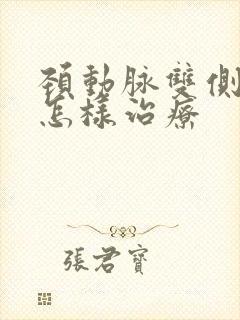 頸動脉雙側
怎樣治療
張君寶